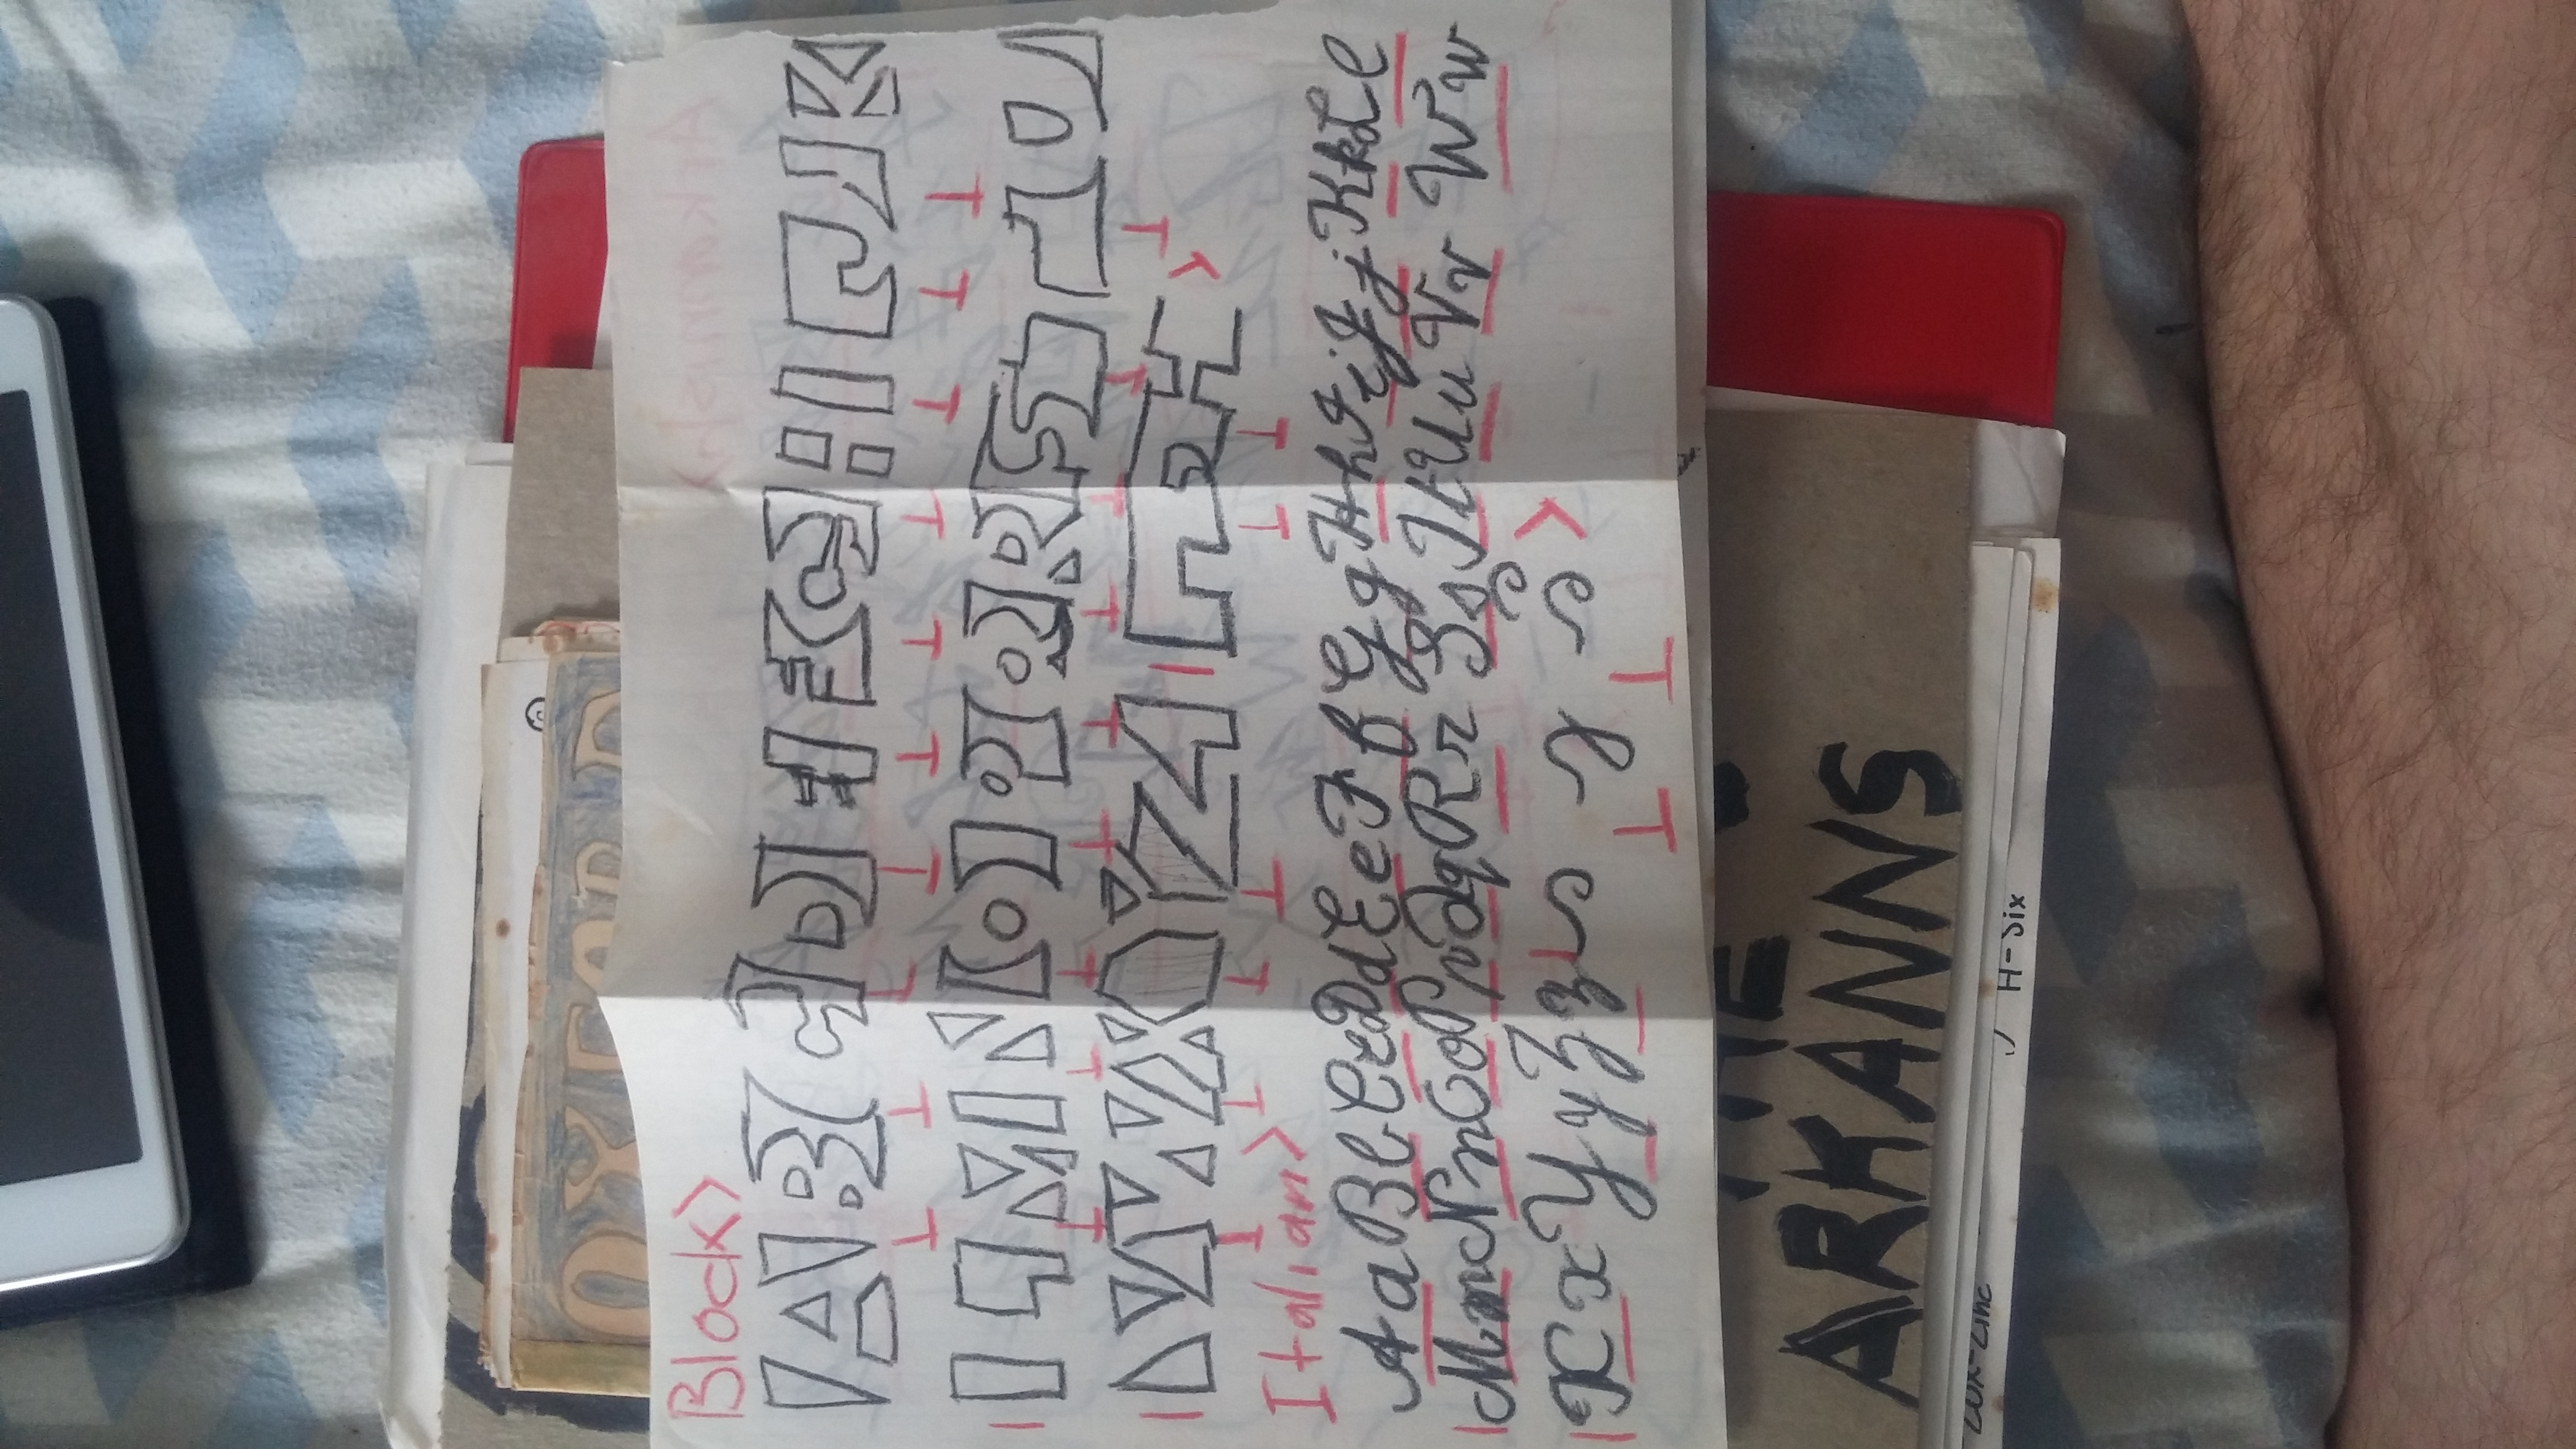 Block>
A B C D E F G H I J K
L M N O P Q R S T U
V W X Y Z
Italian>
A a B b C c D d E e F f G g H h I i J j K k L l
M m N n O o P p Q q R r S s T t U u V v W w
X x Y y Z z
OXFORD
ARKANNS
H-Six